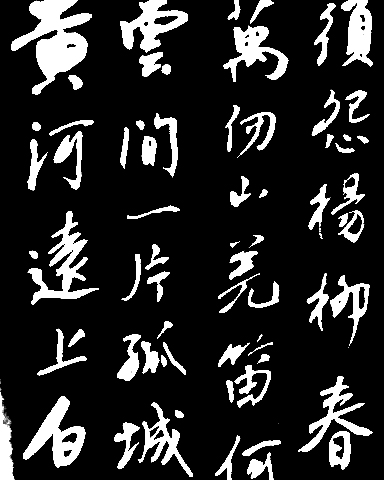 黄河遠上白
雲間一片孤城
萬仞山羌笛何
須怨楊柳春